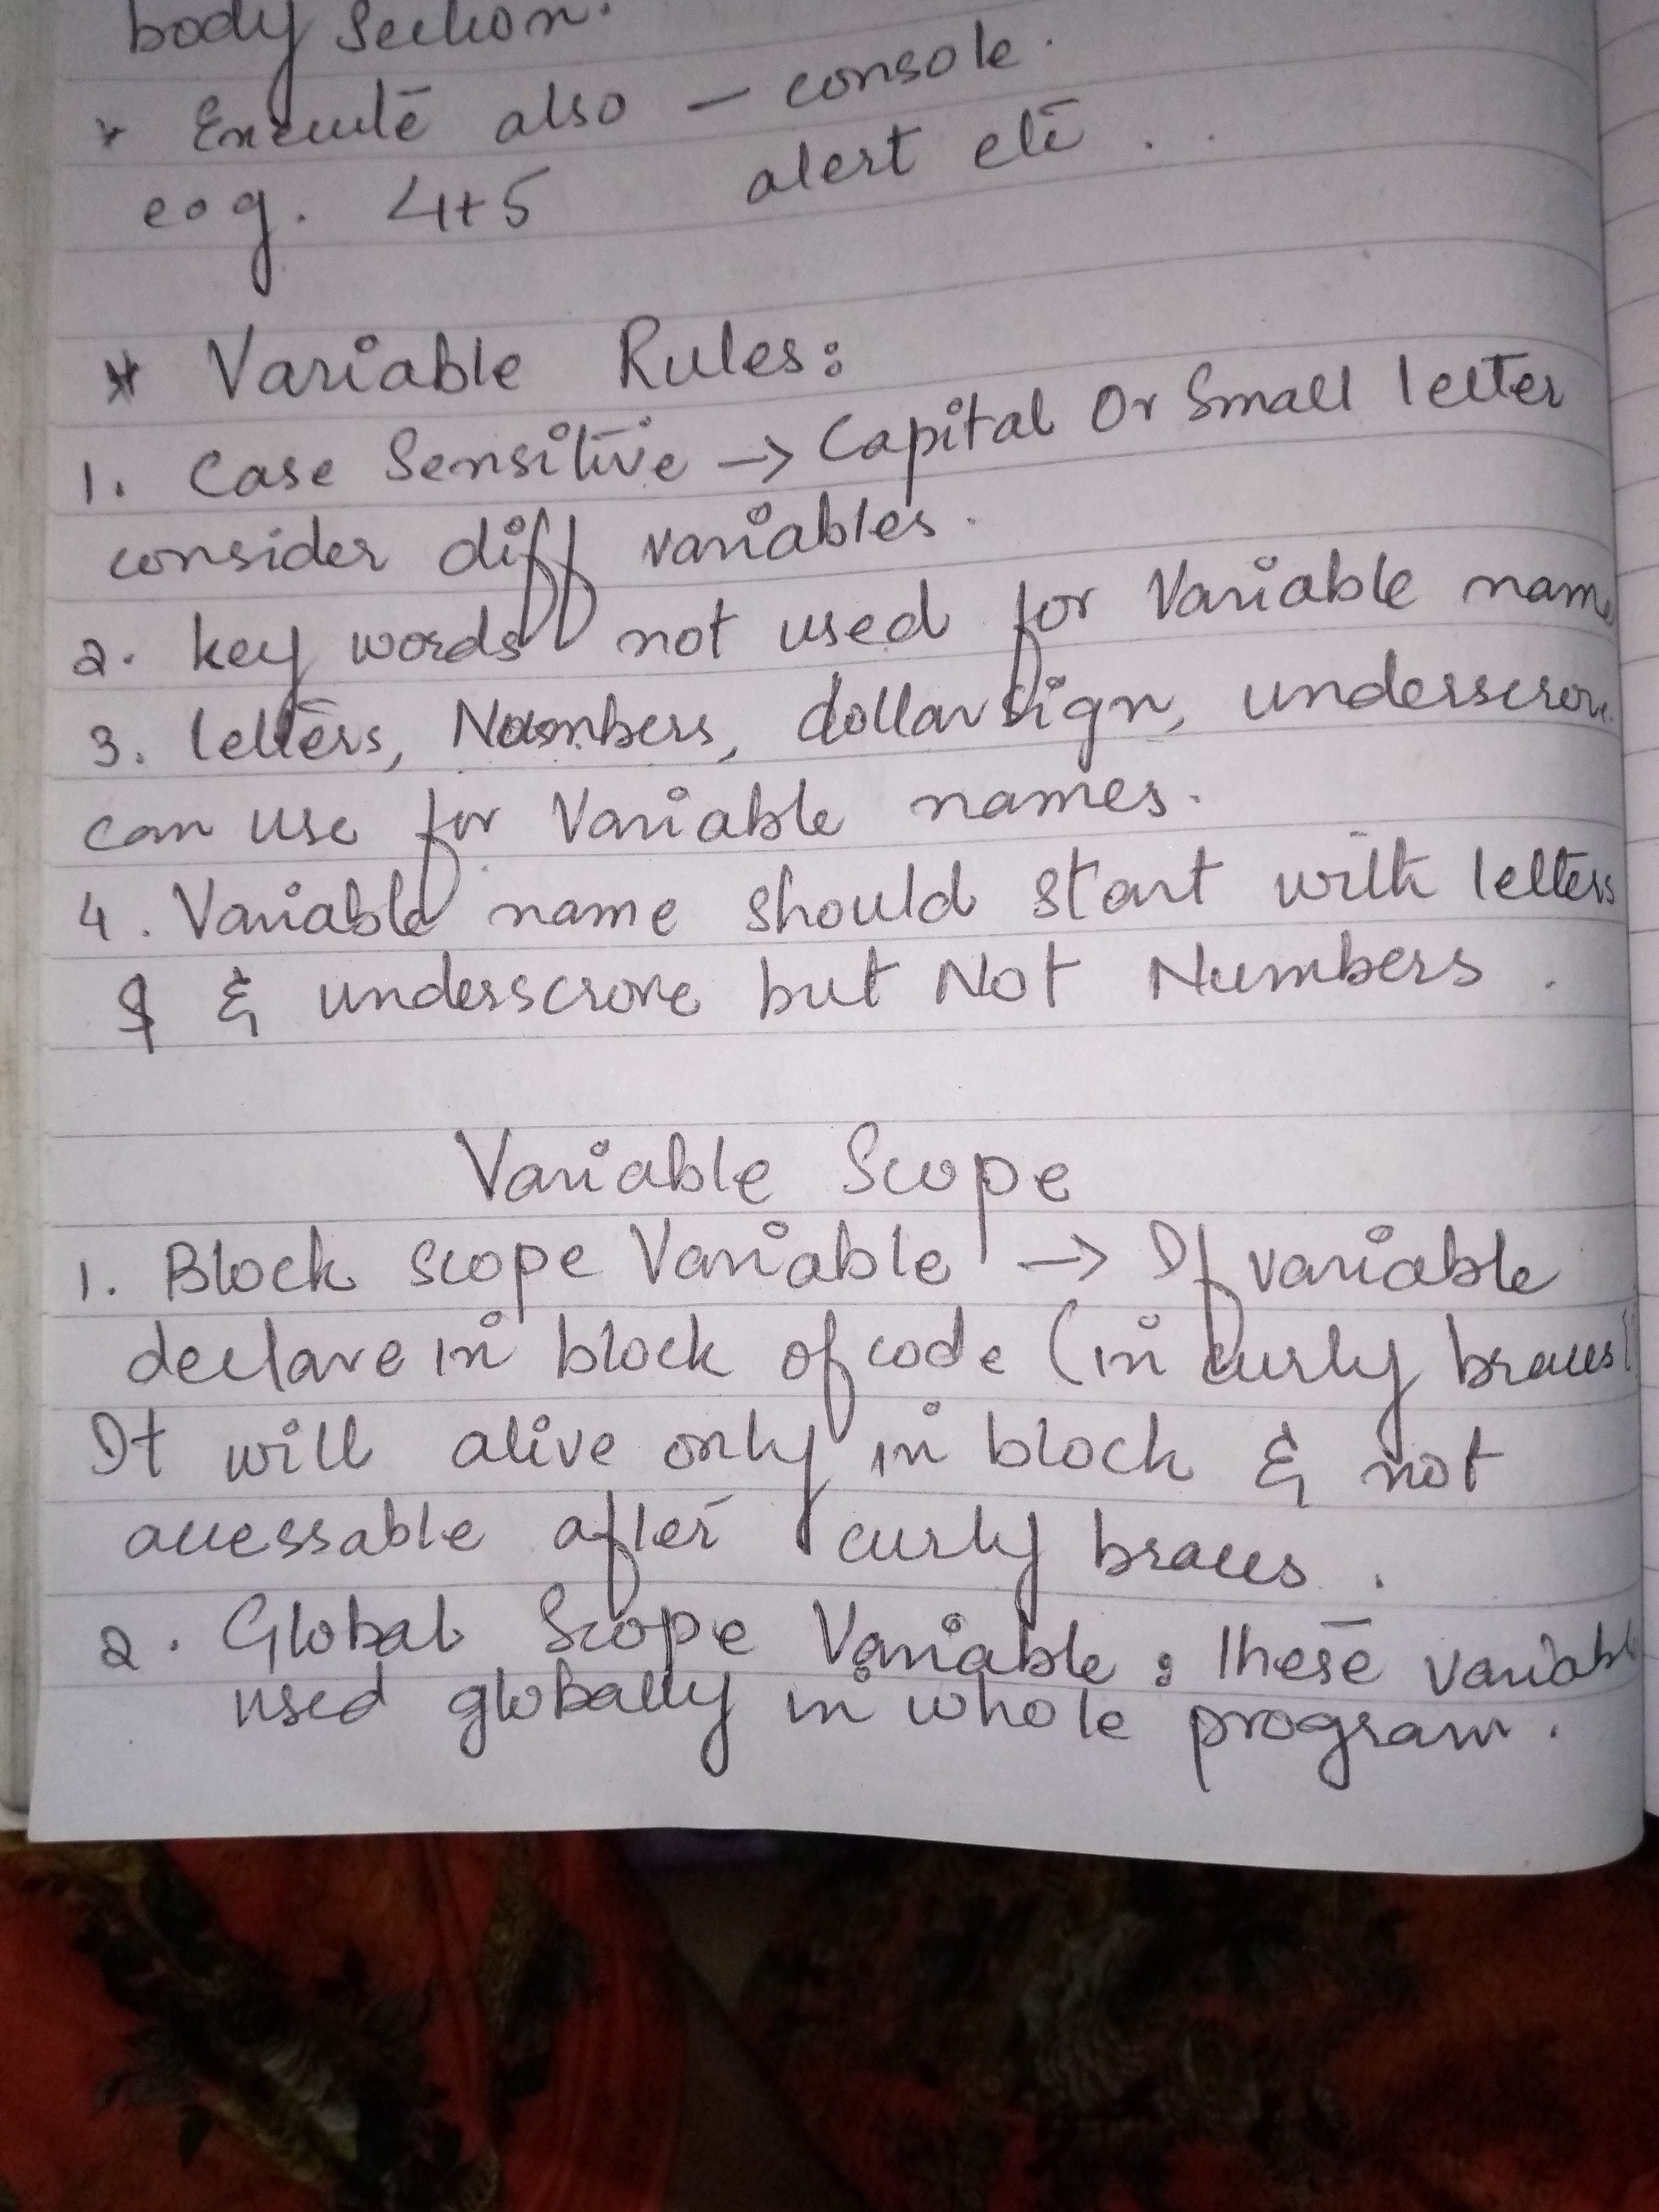 body section.
* Execute also – console.
e.g. 4+5 alert etc ..
* Variable Rules:
1. Case Sensitive → Capital Or Small letter
consider diff variables.
2. key words not used for Variable name
3. letters, Numbers, dollar sign, underscrore
can use for Variable names.
4. Variable name should start with letters
$ & underscrore but Not Numbers.
Variable Scope
1. Block scope Variable → If variable
declare in block of code (in curly braces)
It will alive only in block & not
accessable after curly braces.
2. Global Scope Variable : These variabl
used globally in whole program.